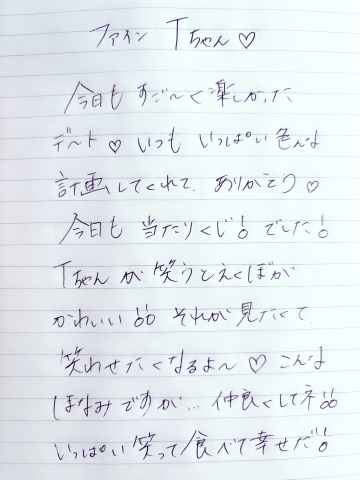 ファイン Tちゃん♡
今日も すご〜く楽しかった
デート♡ いつも いっぱい色んな
計画してくれて、ありがとう♡
今日も 当たりくじ!でした!
Tちゃんが 笑うとえくぼが
かわいい!! それが見たくて
笑わせたくなるよ〜♡ こんな
ほなみですが... 仲良くしてネ!!
いっぱい笑って食べて幸せだ!